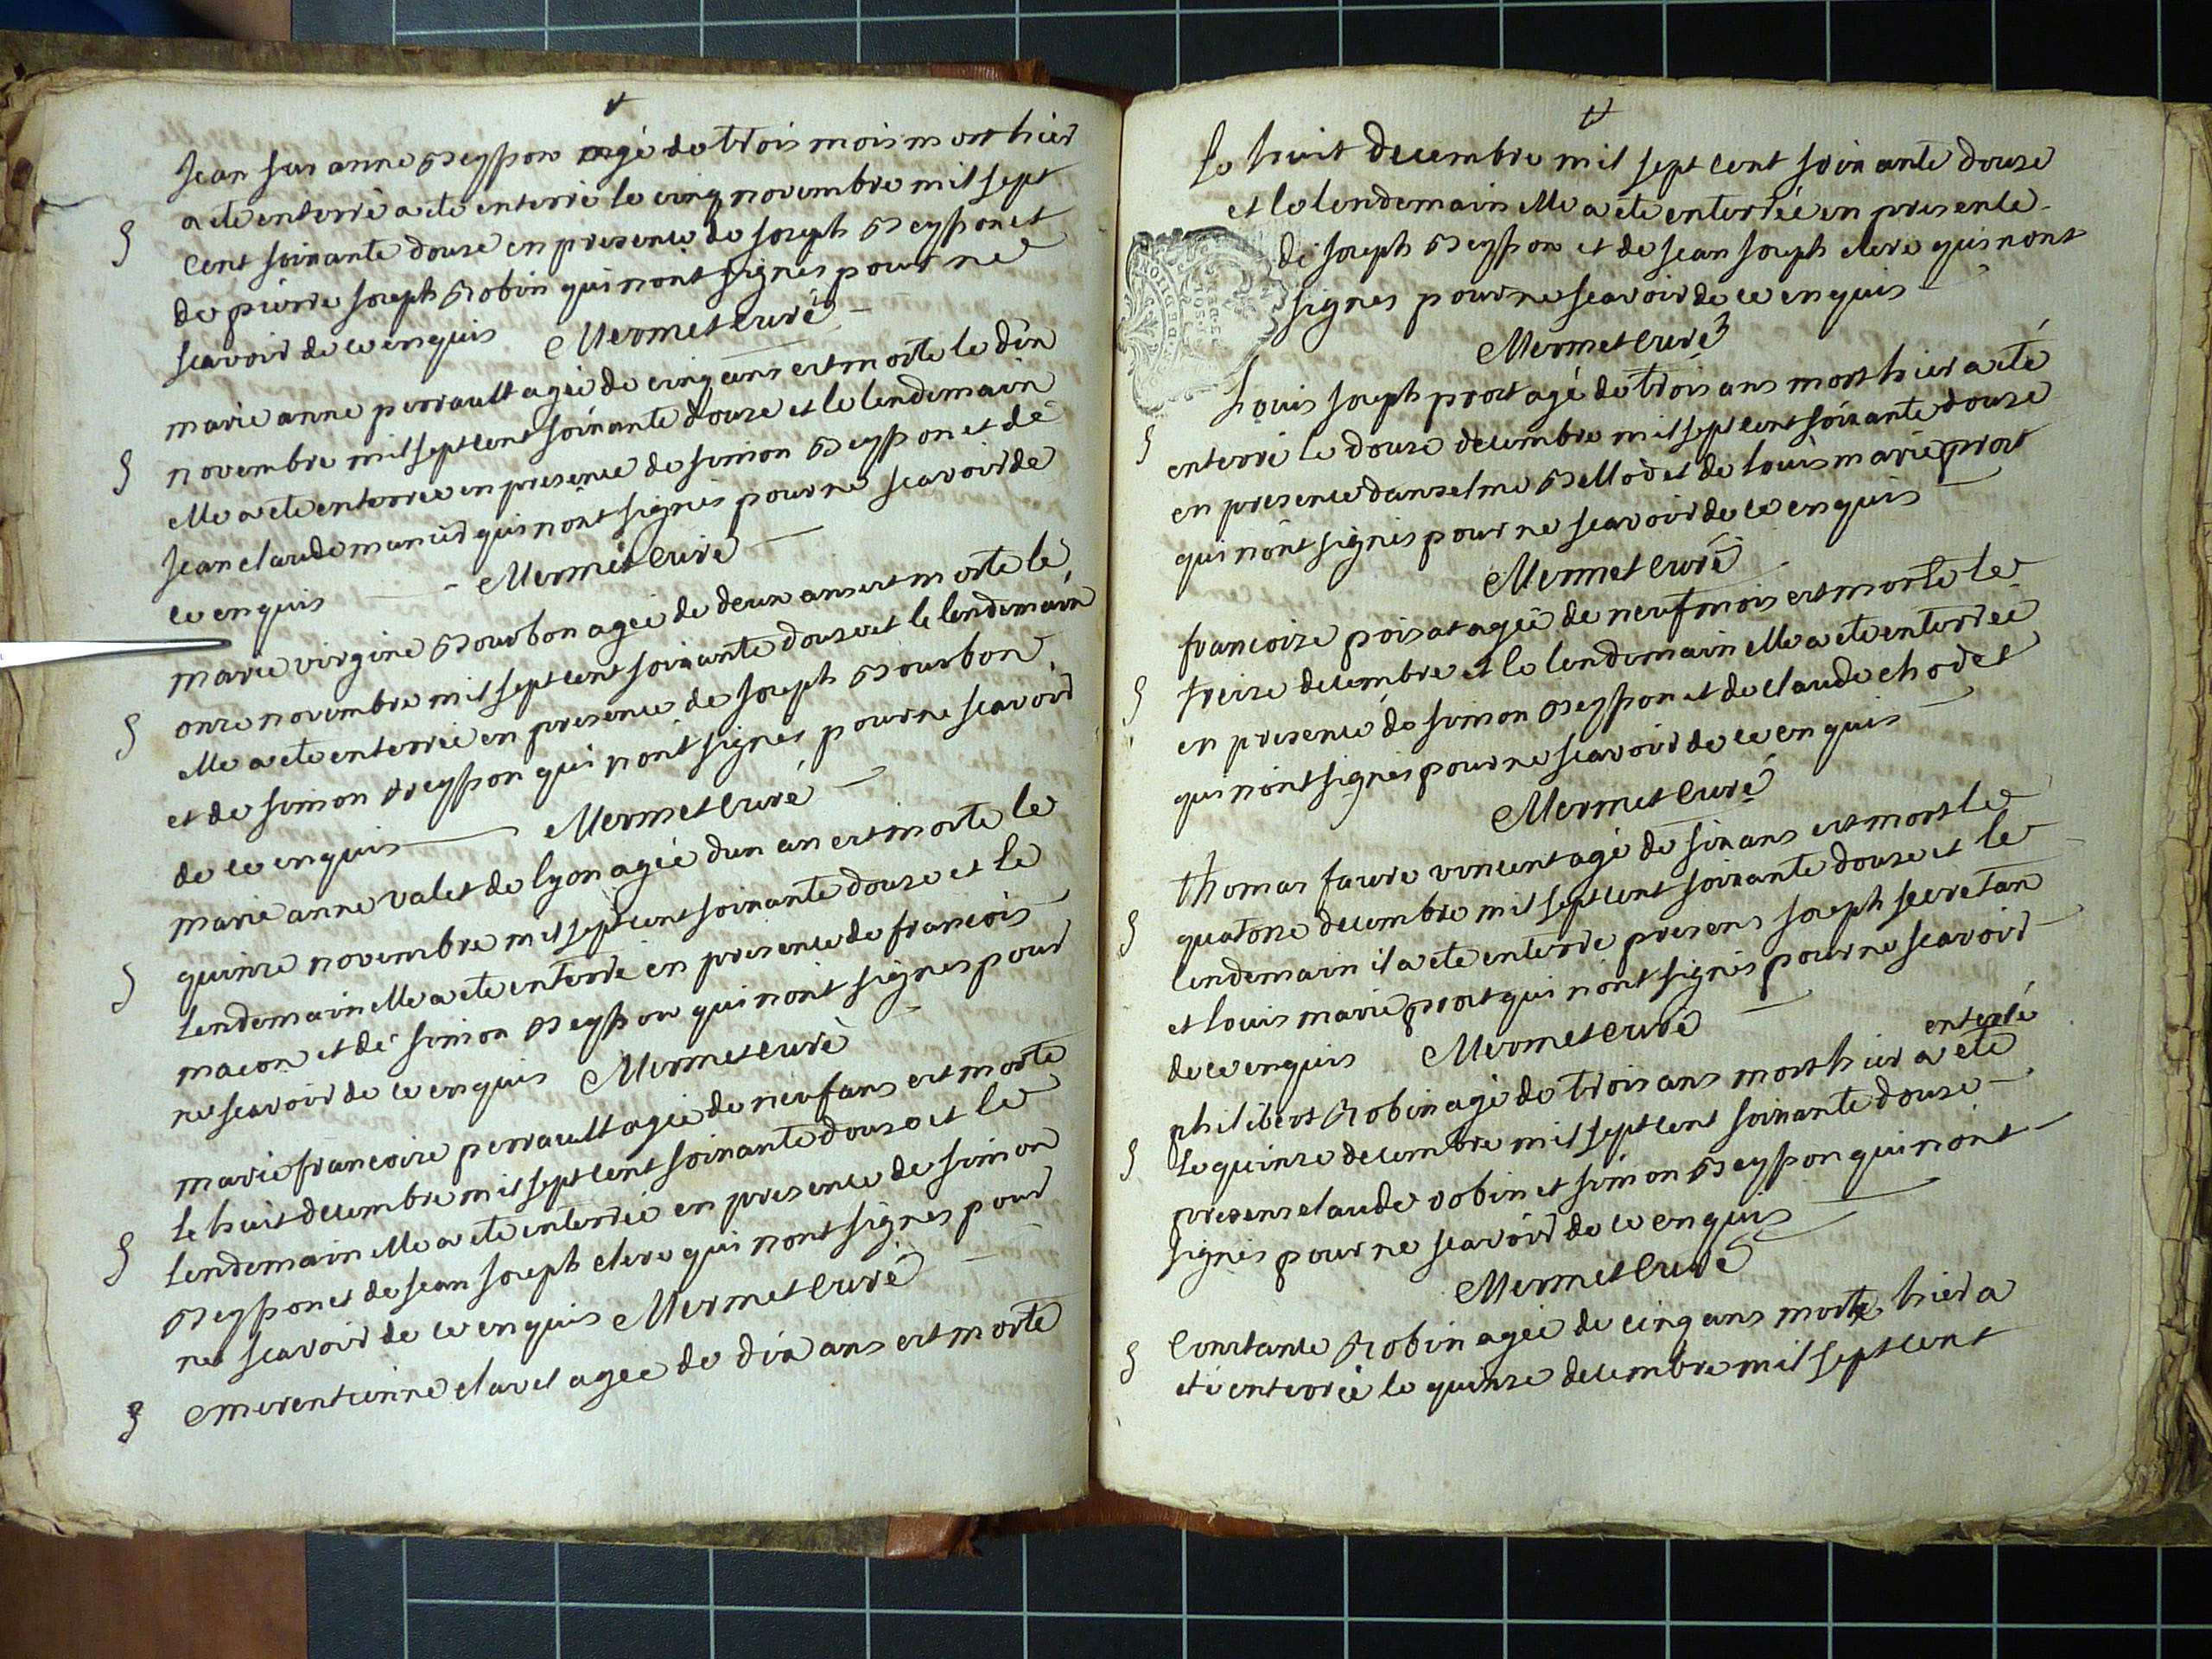 Jean suranne Beysson agé de trois mois mort hier
a ete enterré a ete enterré le cinq novembre mil sept
cent soixante douse en presence de joseph Beysson et
de pierre joseph Robin qui nont signes pour ne
scavoir de ce enquis Mermet curé
marie anne perrault agée de cinq ans est morte le dix
novembre mil sept cent soixante douse et le lendemain
elle a ete enterree en presence de simon Beysson et de
jean claude qui nont signés pour ne scavoir de
ce enquis Mermet curé
marie virgine Bourbon agée de deux ans est morte le
onze novembre mil sept cent soixante douse et le lendemain
elle a ete enterrée en presence de joseph Bourbon
et de simon Beysson qui nont signes pour ne scavoir
de ce enquis Mermet curé
marie anne valet de lyon agée dun an est morte le
quinze novembre mil sept cent soixante douse et le
lendemain elle a ete enterré en presence de francois
macon et de simon Beysson qui nont signes pour
ne scavoir de ce enquis Mermet curé
marie francoise perrault agée de neuf ans est morte
le huit decembre mil sept cent soixante douse et le
lendemain elle a ete enterrée en presence de simon
Beysson et de jean joseph clere qui nont signes pour
ne scavoir de ce enquis Mermet curé
emerentienne clavet agée de dix ans est morte
le huit decembre mil sept cent soixante douse
et le lendemain elle a ete enterrée en presence
de joseph Beysson et de jean joseph clere qui nont
signes pour ne scavoir de ce enquis
Mermet curé
Louis joseph prost agé de trois ans mort hier a eté
enterré le douse decembre mil sept cent soixante douse
en presence danselme Bellod et de louis marie prost
qui nont signes pour ne scavoir de ce enquis
Mermet curé
francoise poisat agée de neuf mois est morte le
treize decembre et le lendemain elle a ete enterrée
en presence de simon Beysson et de claude chodet
qui nont signes pour ne scavoir de ce enquis
Mermet curé
thomas favre vincent agé de six ans est mort le
quatorze decembre mil sept cent soixante douse et le
lendemain il a ete enterré presens joseph secretan
et louis marie prost qui nont signés pour ne scavoir
de ce enquis Mermet curé
enterré
philibert Robin agé de trois ans mort hier a eté
le quinze decembre mil sept cent soixante douse
presens claude robin et simon Beysson qui nont
signés pour ne scavoir de ce enquis
Mermet curé
Constance Robin agée de cinq ans morte hier a
eté enterrée le quinze decembre mil sept cent